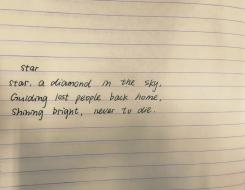 star
star, a diamond in the sky,
Guiding lost people back home,
Shining bright, never to die.